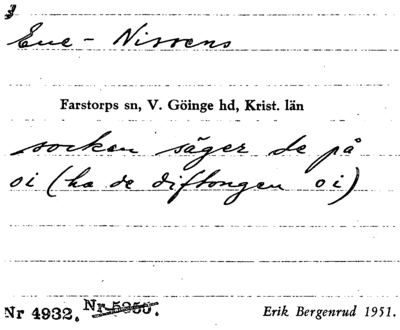 3
Ene - Nissens
Farstorps sn, V. Göinge hd, Krist. län
socken säger de på
oi (ha de diftongen oi)
Nr 4932. Nr 5250.
Erik Bergenrud 1951.